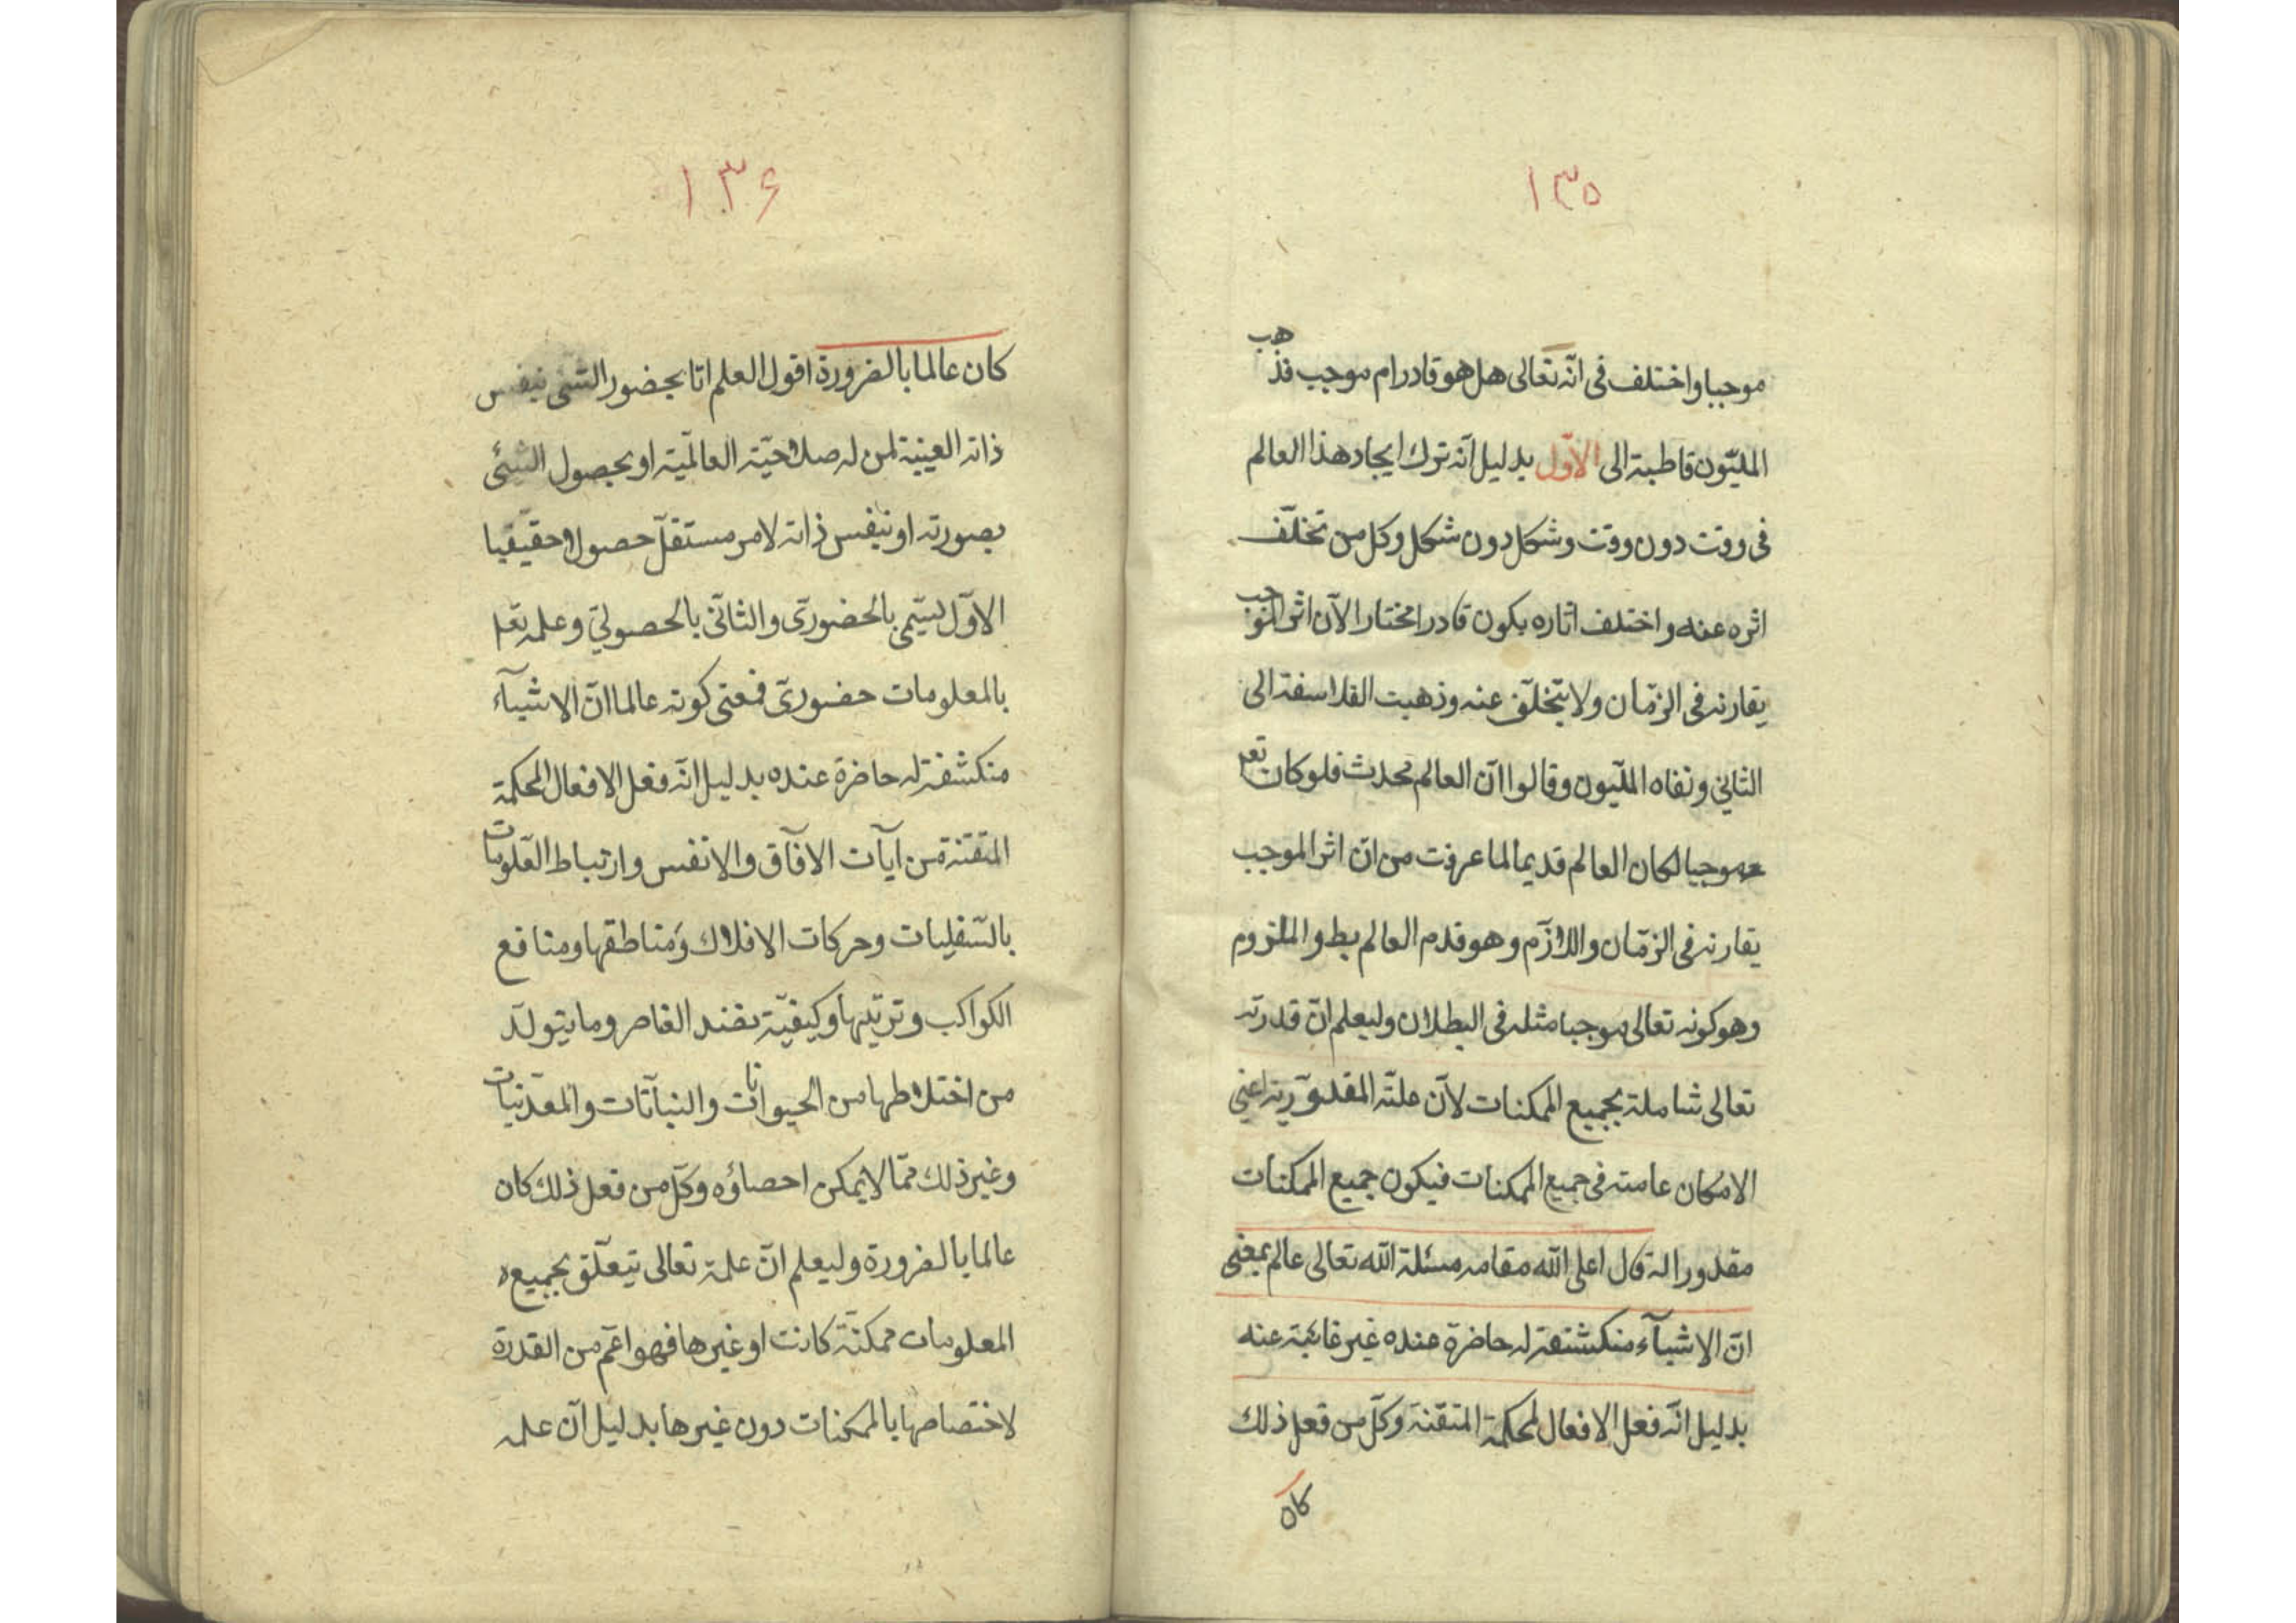 ۱۳۵
موجبا واختلف فی انّه تعالی هل هو قادرام موجب فذهب
الملیّون قاطبة الی الاوّل بدلیل انّه ترك ایجاد هذا العالم
فی وقت دون وقت وشکل دون شکل وکل من تخلّف
اثره عنه واختلف اثاره یکون قادرا مختارا لانّ اثر الموجب
یقارنه فی الزّمان ولا یتخلّف عنه وذهبت الفلاسفة الی
الثانی ونفاه الملّیون وقالوا انّ العالم محدث فلو کان تعم
موجبا لکان العالم قدیما لما عرفت من انّ اثر الموجب
یقارنه فی الزّمان واللازّم وهو قدم العالم بط والملزوم
وهو کونه تعالی موجبا مثله فی البطلان ولیعلم انّ قدرته
تعالی شاملة بجمیع الممکنات لانّ علّة المقدوّریة اعنی
الامکان عامته فی جمیع الممکنات فیکون جمیع الممکنات
مقدورا له قال اعلی اللّه مقامه مسئلة اللّه تعالی عالم بمعنی
انّ الاشیآء منکشفة له حاضرة عنده غیر غائبة عنه
بدلیل انّه فعل الافعال المحکمة المتقنة وکلّ من فعل ذلك
کان
۱۳۶
کان عالما بالضرورة اقول العلم امّا بحضور الشئ بنفس
ذاته العینیة لمن له صلاحیّة العالمّیة او بحصول الشئ
بصورته او بنفس ذاته لامر مستقلّ حصولا حقیقیا
الاوّل یسمّی بالحضوریّ والثانّی بالحصولیّ وعلمه تعم
بالمعلومات حضوریّ فمعنی کونه عالما انّ الاشیآء
منکشفة له حاضرة عنده بدلیل انّه فعل الافعال المحکمة
المتقنة من ایآت الافآق والانفس وارتباط العّلویات
بالسّفلیات وحرکات الافلاك وَمناطقها ومنافع
الکواکب وترتیبها وکیفیّة نضد العناصر وما یتولّد
من اختلاطها من الحیوانات والنباتات والمعدّنیات
وغیر ذلك ممّا لا یمکن احصاؤه وکلّ من فعل ذلك کان
عالما بالضرورة ولیعلم انّ علمه تعالی یتعلّق بجمیع
المعلومات ممکنة کانت او غیرها فهو اعمّ من القدرة
لاختصاصها بالممکنات دون غیرها بدلیل انّ علمه